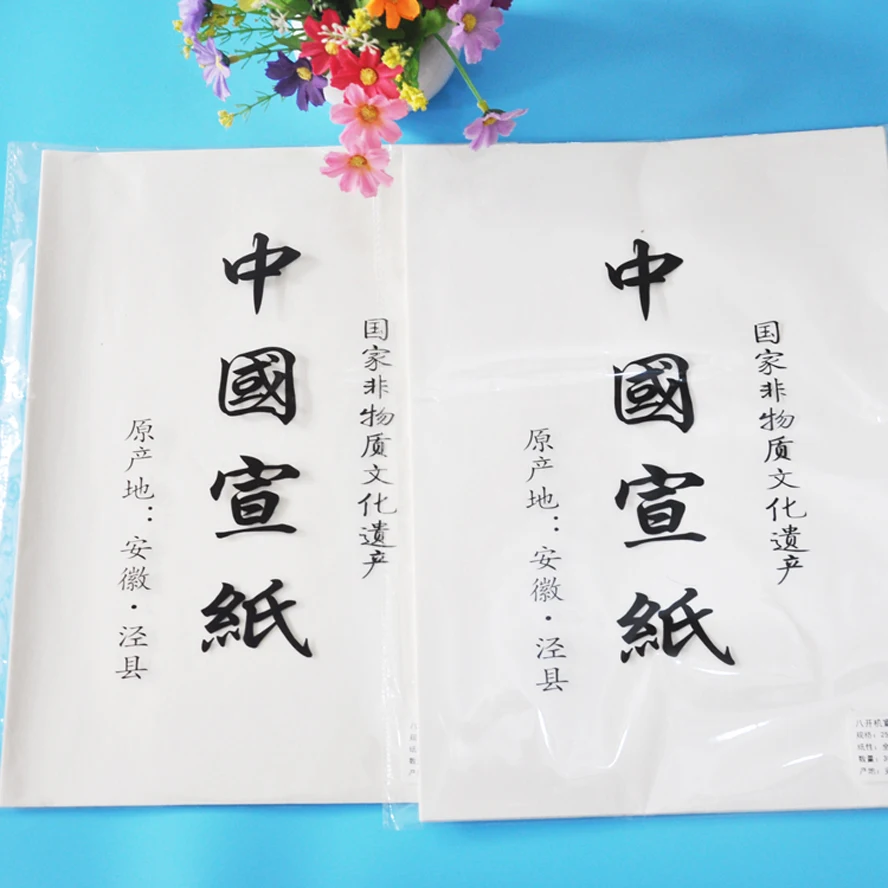 国家非物质文化遗产
中國宣紙
原产地：安徽·泾县
国家非物质文化遗产
中國宣紙
原产地：安徽·泾县
八开机
规格：25
纸性：
数量：
产地：